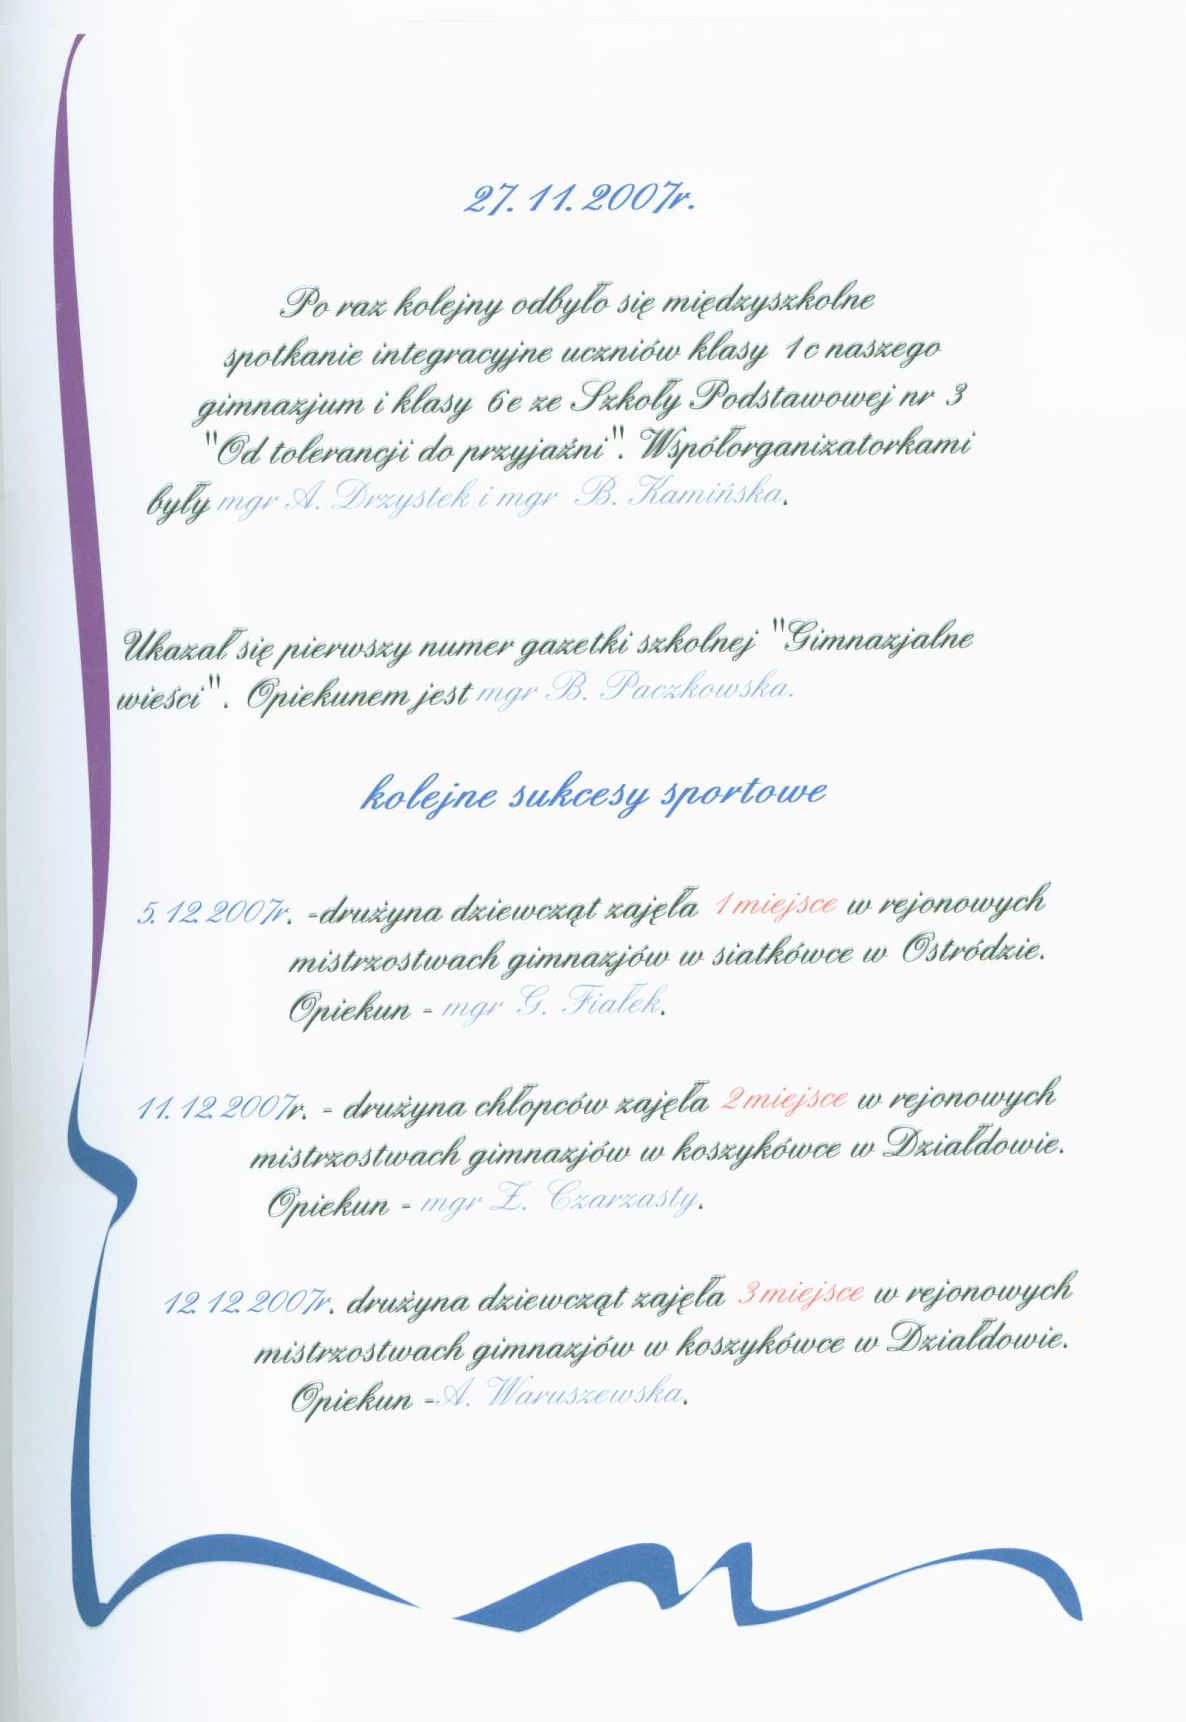 27.11.2007r.
Po raz kolejny odbyło się międzyszkolne
spotkanie integracyjne uczniów klasy 1c naszego
gimnazjum i klasy 6e ze Szkoły Podstawowej nr 3
"Od tolerancji do przyjaźni". Współorganizatorkami
były mgr A. Drzystek i mgr B. Kamińska.
Ukazał się pierwszy numer gazetki szkolnej "Gimnazjalne
wieści". Opiekunem jest mgr B. Paczkowska.
kolejne sukcesy sportowe
5.12.2007r. -drużyna dziewcząt zajęła 1miejsce w rejonowych
mistrzostwach gimnazjów w siatkówce w Ostródzie.
Opiekun - mgr G. Fiałek.
11.12.2007r. - drużyna chłopców zajęła 2miejsce w rejonowych
mistrzostwach gimnazjów w koszykówce w Działdowie.
Opiekun - mgr Z. Czarzasty.
12.12.2007r. drużyna dziewcząt zajęła 3miejsce w rejonowych
mistrzostwach gimnazjów w koszykówce w Działdowie.
Opiekun -A. Waruszewska.